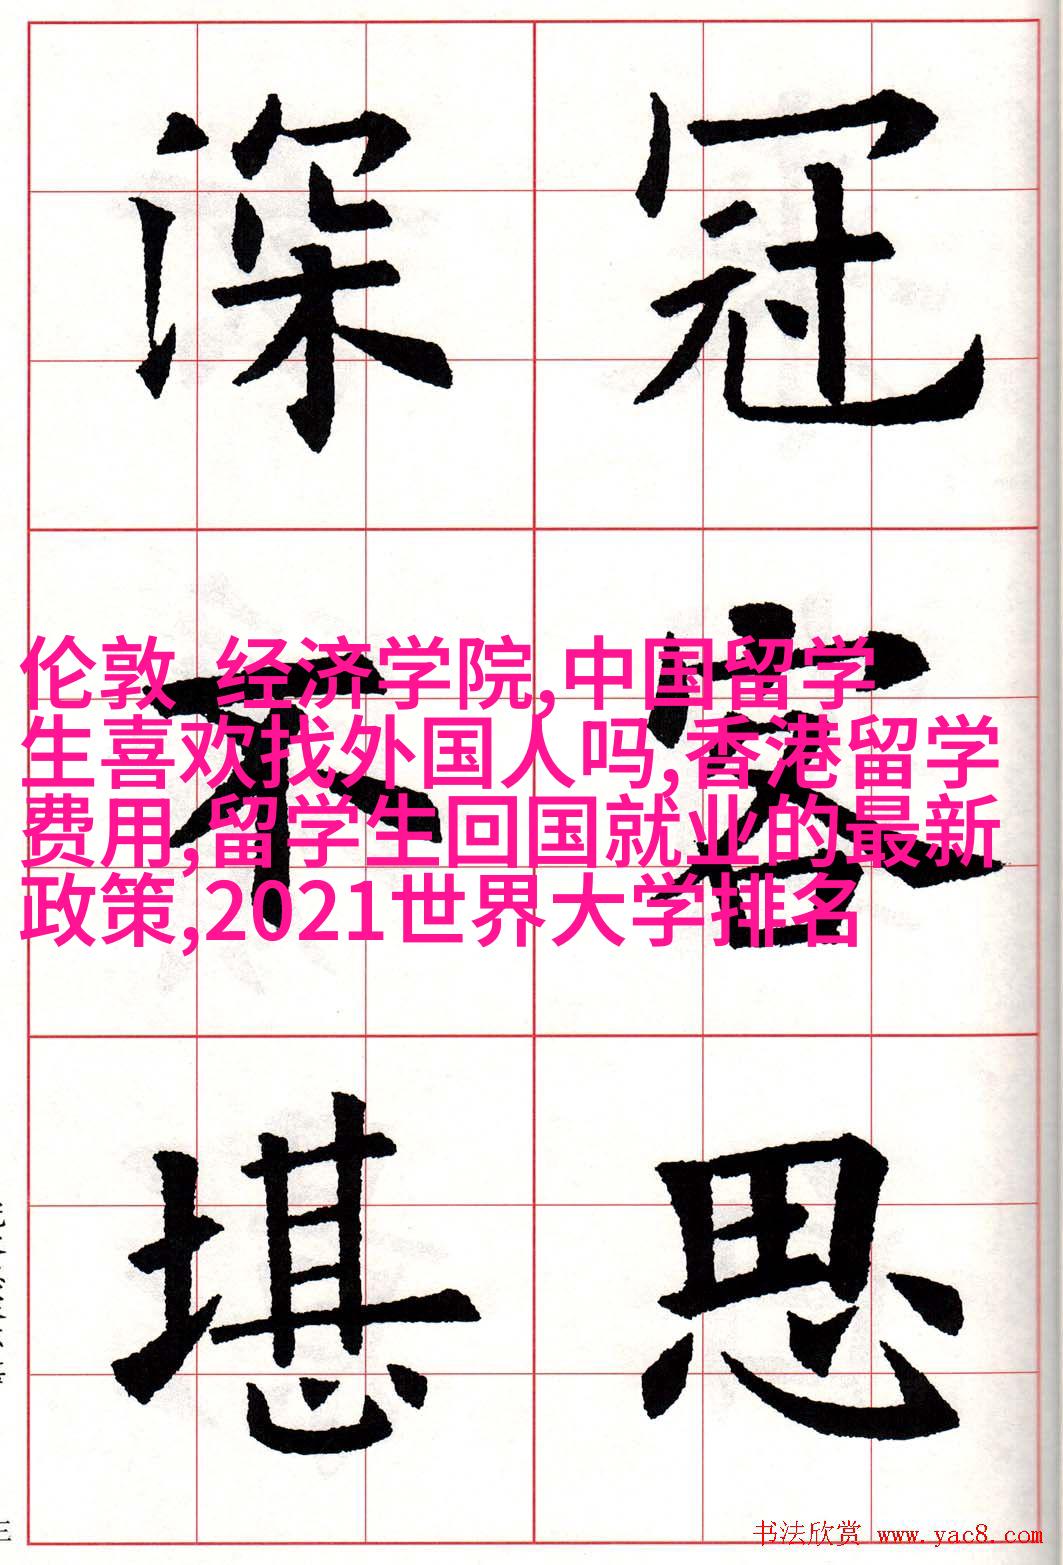 深冠
伦敦 经济学院,中国留学
生喜欢找外国人吗,香港留学
费用,留学生回国就业的最新
政策,2021世界大学排名
不容
堪思
书法欣赏 www.yac8.com